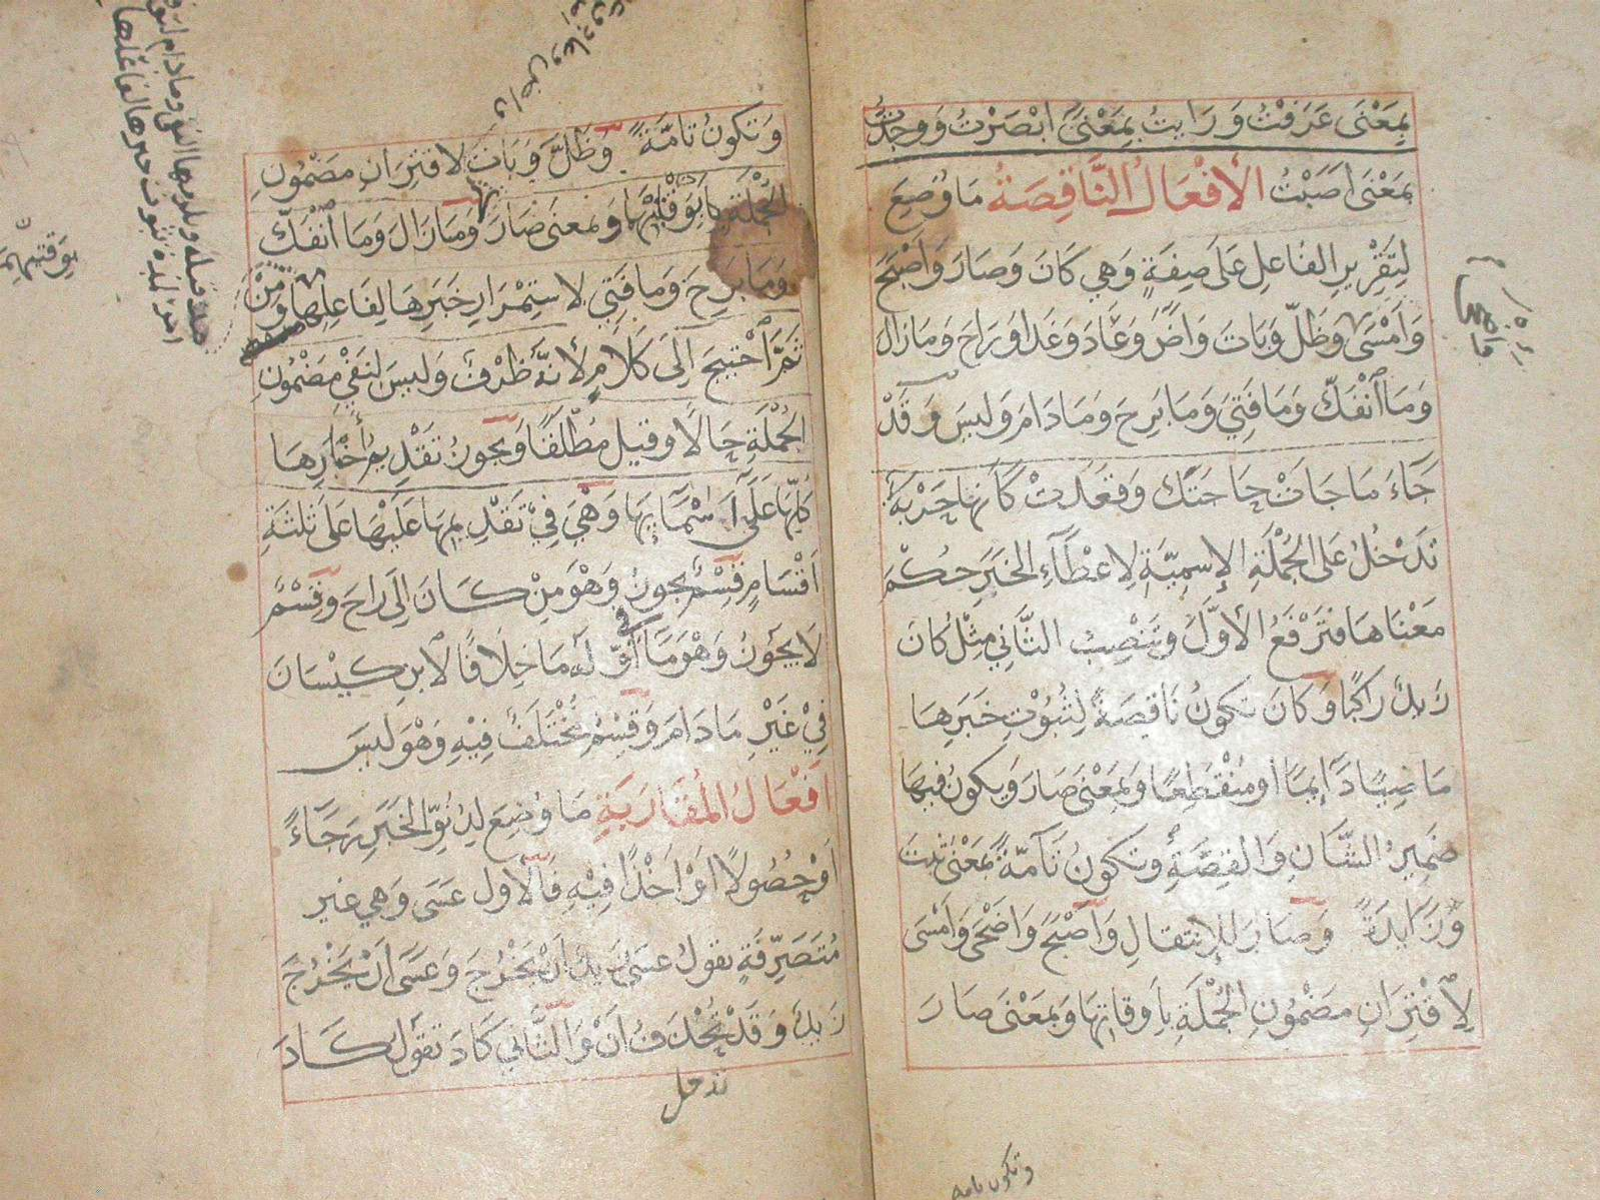 بِمَعْنَى عَرَفْتُ وَرَايتُ بِمَعْنَى ابْصَرْتُ وَوَجَدْتُ
بمَعْنَى اَصَبْتُ الأفْعَالُ النَّاقِصَةُ مَا وُضِعَ
لِتَقْرِيرِ الفَاعِلِ عَلَى صِفَةٍ وَهِي كَانَ وَصَارَ وَاَصْبَحَ
وَاَمْسَى وَظَلَّ وَبَاتَ وَاضَ وَعَادَ وَغَدَا وَرَاحَ وَمَا زَالَ
وَمَا اَنْفَكَّ وَمَا فَتِئَ وَمَا بَرِحَ وَمَا دَامَ وَلَيسَ وَقَدْ
جَاءَ مَا جَاءَتْ حَاجَتُكَ وَقَعَدَتْ كَأنها حَرْبَةٌ
تَدْخُلُ عَلَى الجُمْلَةِ الإسمِيَّةِ لِاعْطَاءِ الخَبَرِ حُكْمَ
مَعْنَاهَا فَتَرْفَعُ الأوَّلَ وَتَنْصِبُ الثَّانِي مِثْلُ كَانَ
زَيدٌ رَاكبًا وَكَانَ تكونُ نَاقِصَةً لِثُبُوْتِ خَبَرِهَا
مَاضِيًا دَائِمًا اَو مُنْقَطِعًا وَبِمَعْنَى صَارَ وَيكونُ فيهَا
ضَمِيرُ الشَّانِ وَالقِصَّةِ وَتكونُ تَامَّةً بمَعْنَى ثبتَ
وَزَايِدَةً وَصَارَ لِلاِنتقَالِ وَاَصْبَحَ وَاَضْحَى وَاَمْسَى
لِاقْتِرَانِ مَضْمُونِ الجُمْلَةِ بِاَوقَاتِهَا وَبِمَعْنَى صَارَ
وتكون تامة
وَتَكونُ تَامَّةً وَظَلَّ وَبَاتَ لِاقتِرَانِ مَضْمُونِ
الجُمْلَةِ بِوَقْتَيْهِمَا وَبمعنَى صَارَ وَمَا زَالَ وَمَا اَنْفَكَّ
وَمَا بَرِحَ وَمَا فَتِئَ لِاستِمْرَارِ خَبَرِهَا لِفَاعِلِهَا وَمِنْ
ثَمَّ اَحْتِيجَ اِلَى كَلَامٍ لِأنَّهُ ظَرْفٌ وَلَيسَ لِنَفْيِ مَضْمُونِ
الجُمْلَةِ حَالًا وَقِيلَ مُطْلَقًا وَيجُوزُ تَقْدِيمُ أَخْبَارِهَا
كُلِّهَا عَلَى اَسْمَائِهَا وَهِيَ فِيْ تَقْدِيمِهَا عَلَيْهَا عَلَى ثَلثَةِ
اَقْسَامٍ قِسْمٌ يَجوزُ وَهُوَ مِنْ كَانَ اِلَى رَاحَ وَقِسْمٌ
لَا يَجُوزُ وَهْوَ مَا في اَوَّلِهِ مَا خِلَافًا لِابنِ كَيْسَانَ
فِيْ غَيْرِ مَا دَامَ وَقِسْمٌ مُخْتَلَفٌ فِيْهِ وَهْوَ لَيسَ
اَفْعَالُ المُقَارَبَةِ مَا وُضِعَ لِدُنُوِّ الخَبَرِ رَجَاءً
اَوْ حُصُولًا اَوْ اَخْذًا فِيْهِ فَالْأوَّل عَسَى وَهِي غير
مُتَصَرِّفَةٍ تقولُ عسَى زَيدٌ اَنْ يَخْرُجَ وَعَسَى اَنْ يَخْرُجَ
زَيدٌ وَقَدْ تُحْذَفُ اَنْ وَالثَّانِي كَادَ تقولُ كَادَ